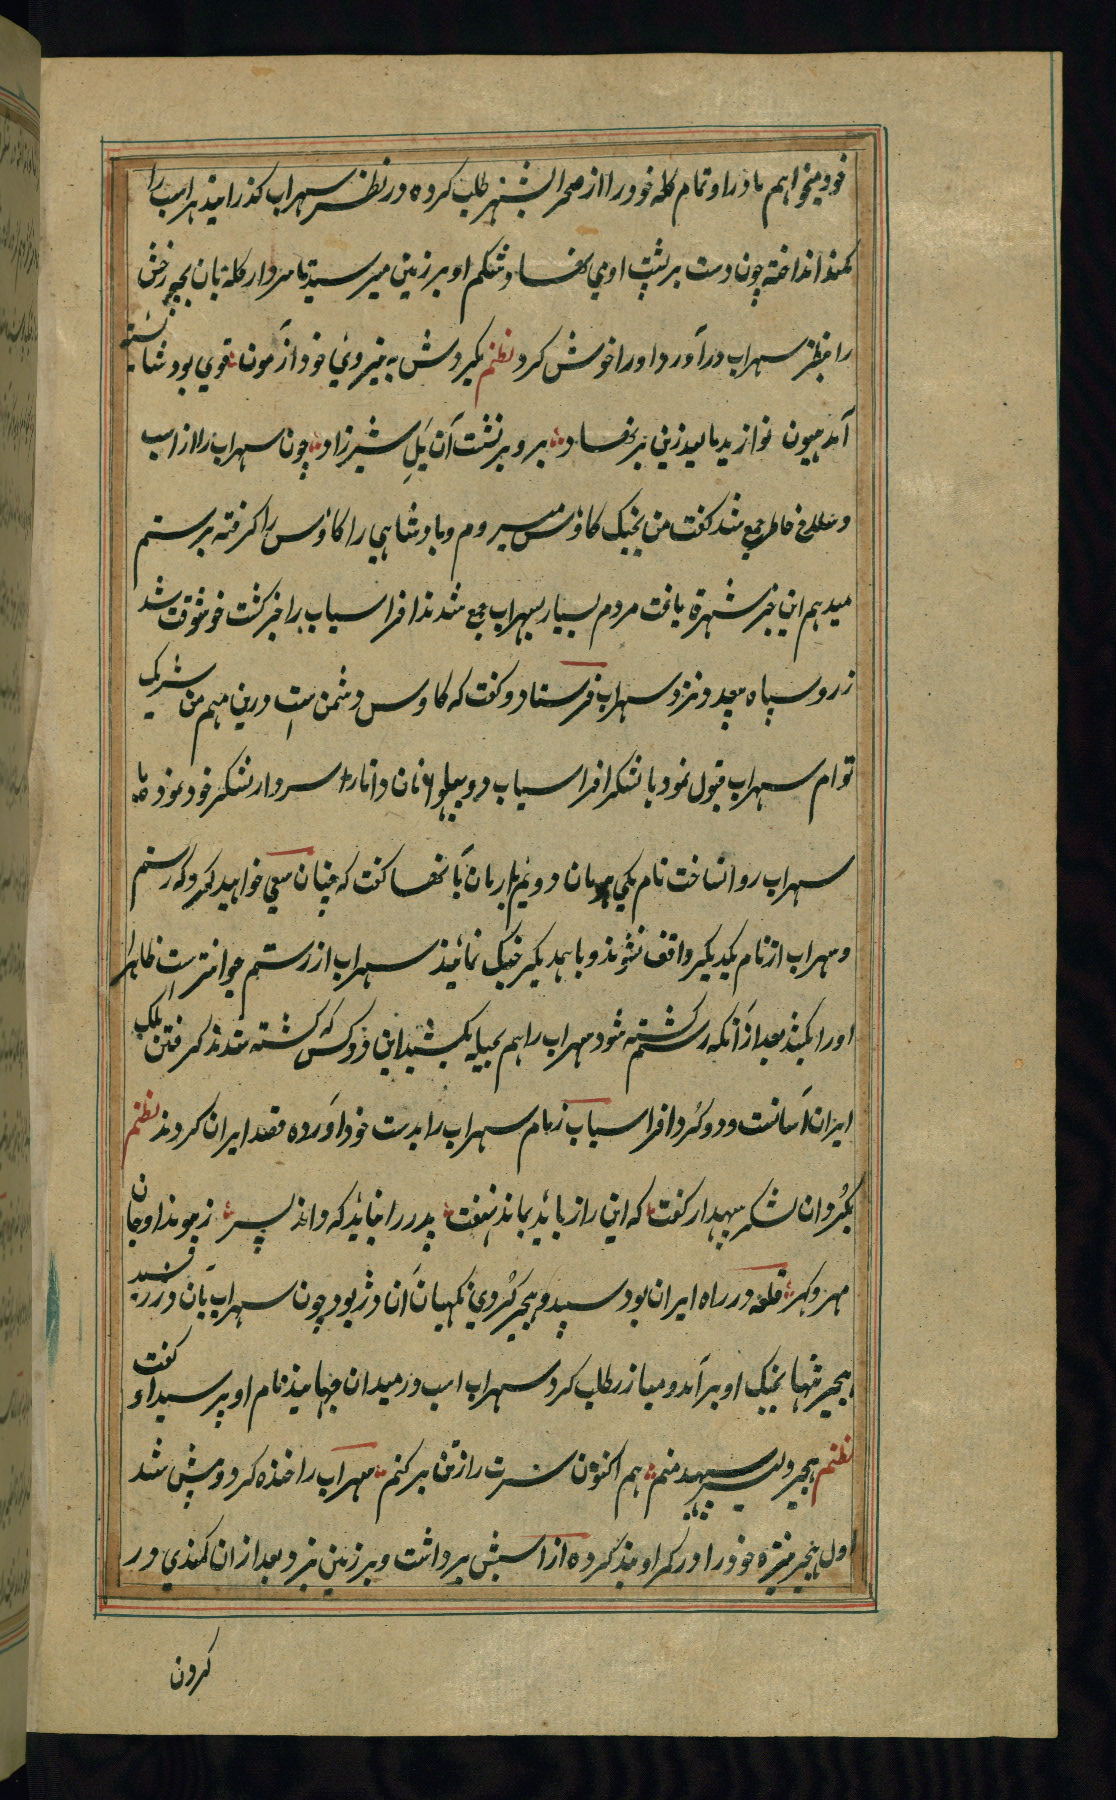 خود میخواهم مادر او تمام گله خود را از صحرا بشهر طلب کرده در نظر سهراب گذرانید هر اسب را
کمند انداخته چون دست بر پشت او می نهاد شکم او بر زمین میرسید تا سردار گله بان بچه رخش
را بنظر سهراب در آورد او را خوش کرد نظم بکردش به نیروی خود آزمون قوی بود شایسته
آمد هیون نوازید و مالید زین بر نهاد برو بر نشست آن یل شیرزاد چون سهراب را از اسب
و سلاح خاطر جمع شد گفت من بجنگ کاوس میروم و بادشاهی را کاوس را گرفته برستم
میدهم این خبر شهرة یافت مردم بسیار بسهراب جمع شدند افراسیاب را خبر گشت خوشوقت شد
زر و سپاه بیحد و نزد سهراب فرستاد و گفت که کاوس دشمن ست درین مهم من شریک
توام سهراب قبول نمود با لشکر افراسیاب دو پهلوانان دانا را سردار لشکر خود نموده با
سهراب روان ساخت نام یکی هومان دویم بارمان بآنها گفت که چنان سعی خواهید کرد که رستم
و سهراب از نام یکدیگر واقف نشوند و باهمدیگر جنگ نمائید سهراب از رستم جوانتر ست ظاهرا
او را بکشد بعد از آنکه رستم کشته شود سهراب را هم بحیله بکشید این دو کس که کشته شدند گرفتن ملک
ایران آسانست و دو گرد افراسیاب زمام سهراب را بدست خود آورده قصد ایران کردند نظم
بگردان لشکر سپهدار گفت که این راز باید بماند نهفت پدر را نباید که داند پسر ز پیوند او جان
مهر و گهر قلعه در راه ایران بود سپید و هجیر گردی نگهبان آن دژ بود چون سهراب بآن دژ رسید
هجیر تنها بجنگ او بر آمد و مبارز طلب کرد سهراب اسب در میدان جهانید نام او پرسید او گفت
نظم هجیر دلیر سپهبد منم هم اکنون سرت را ز تن بر کنم سهراب را خنده کرد و پیش شد
اول هجیر نیزه خود را در کمر او بند کرده از اسپش برداشت و بر زمین بزد بعد از ان کمندی در
کردن